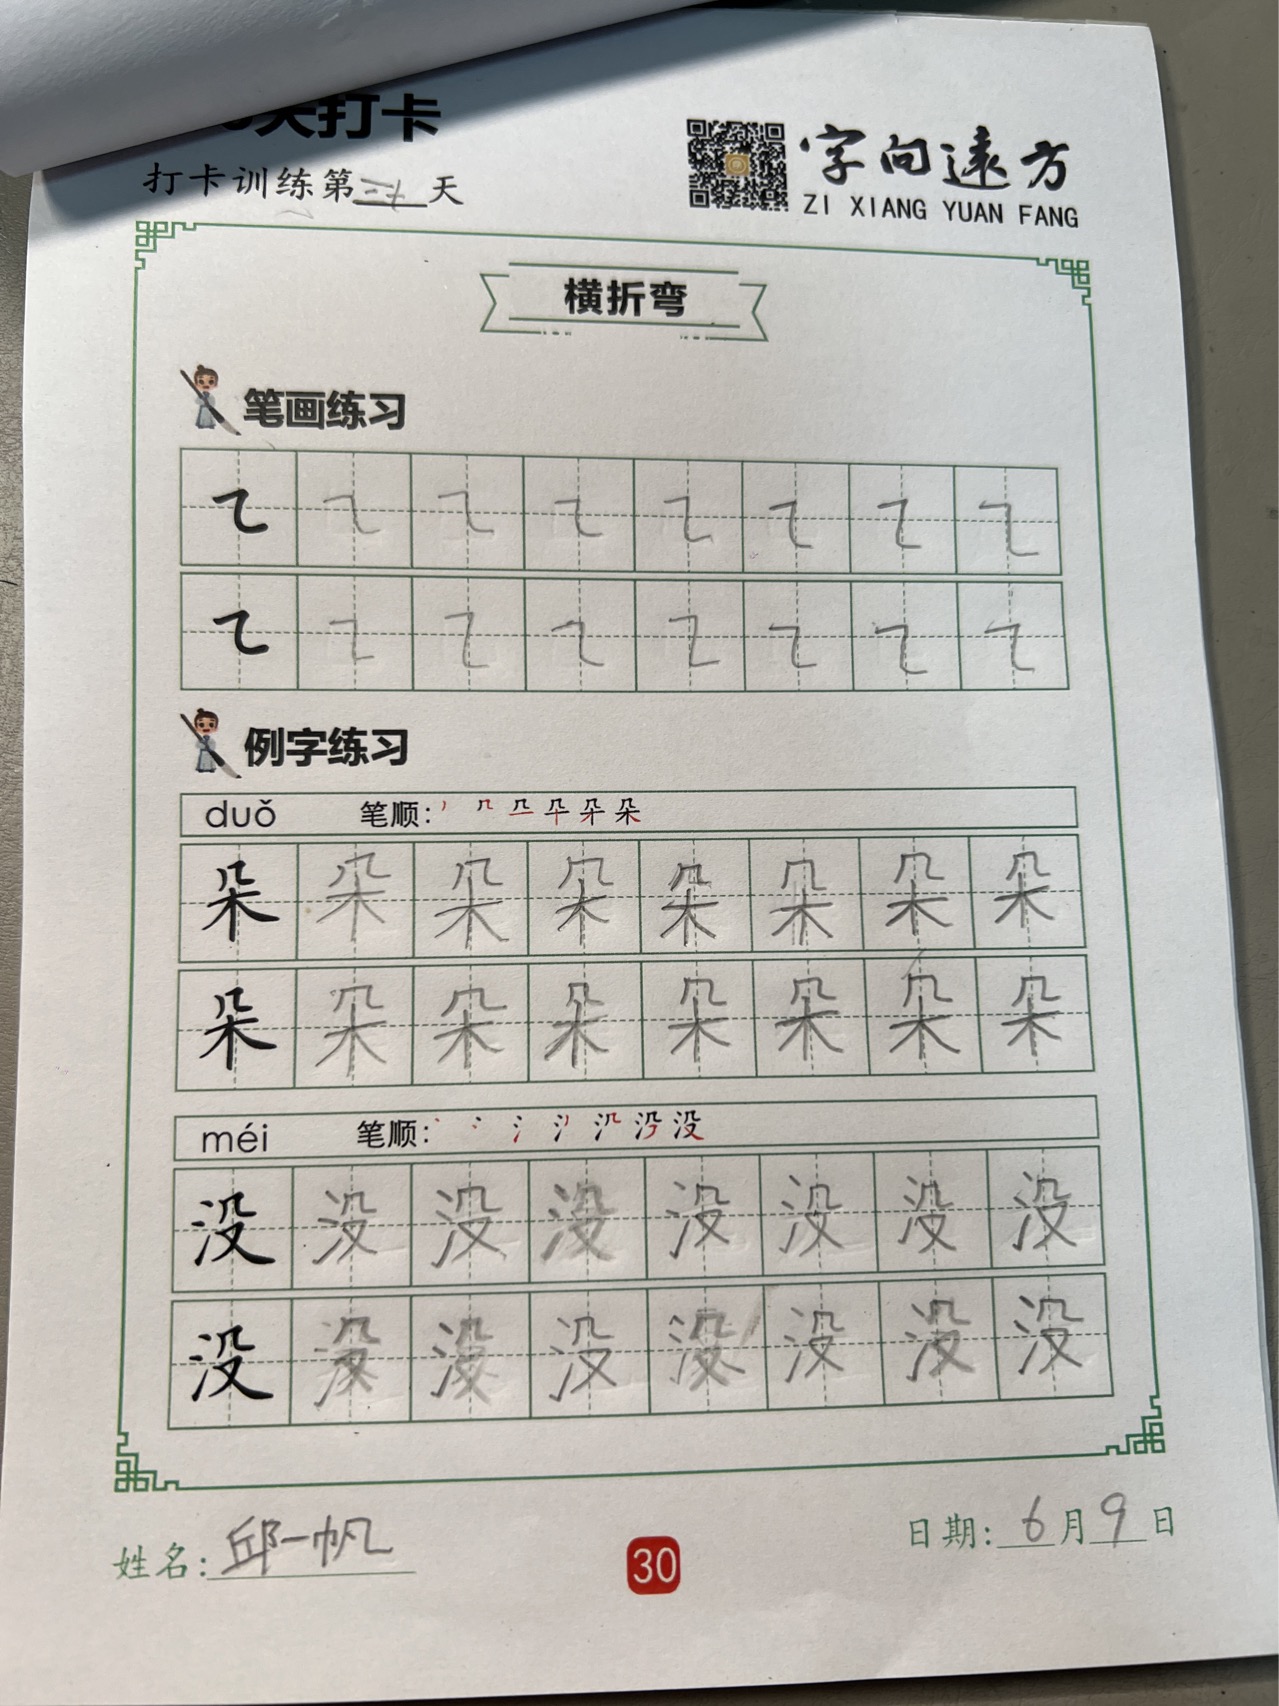 天打卡
打卡训练第三十天
字向远方
ZI XIANG YUAN FANG
横折弯
笔画练习
例字练习
duǒ 笔顺:
朵 朵 朵 朵 朵 朵 朵 朵
朵 朵 朵 朵 朵 朵 朵 朵
méi 笔顺:
没 没 没 没 没 没 没 没
没 没 没 没 没 没 没 没
姓名: 邱一帆
30
日期: 6月9日